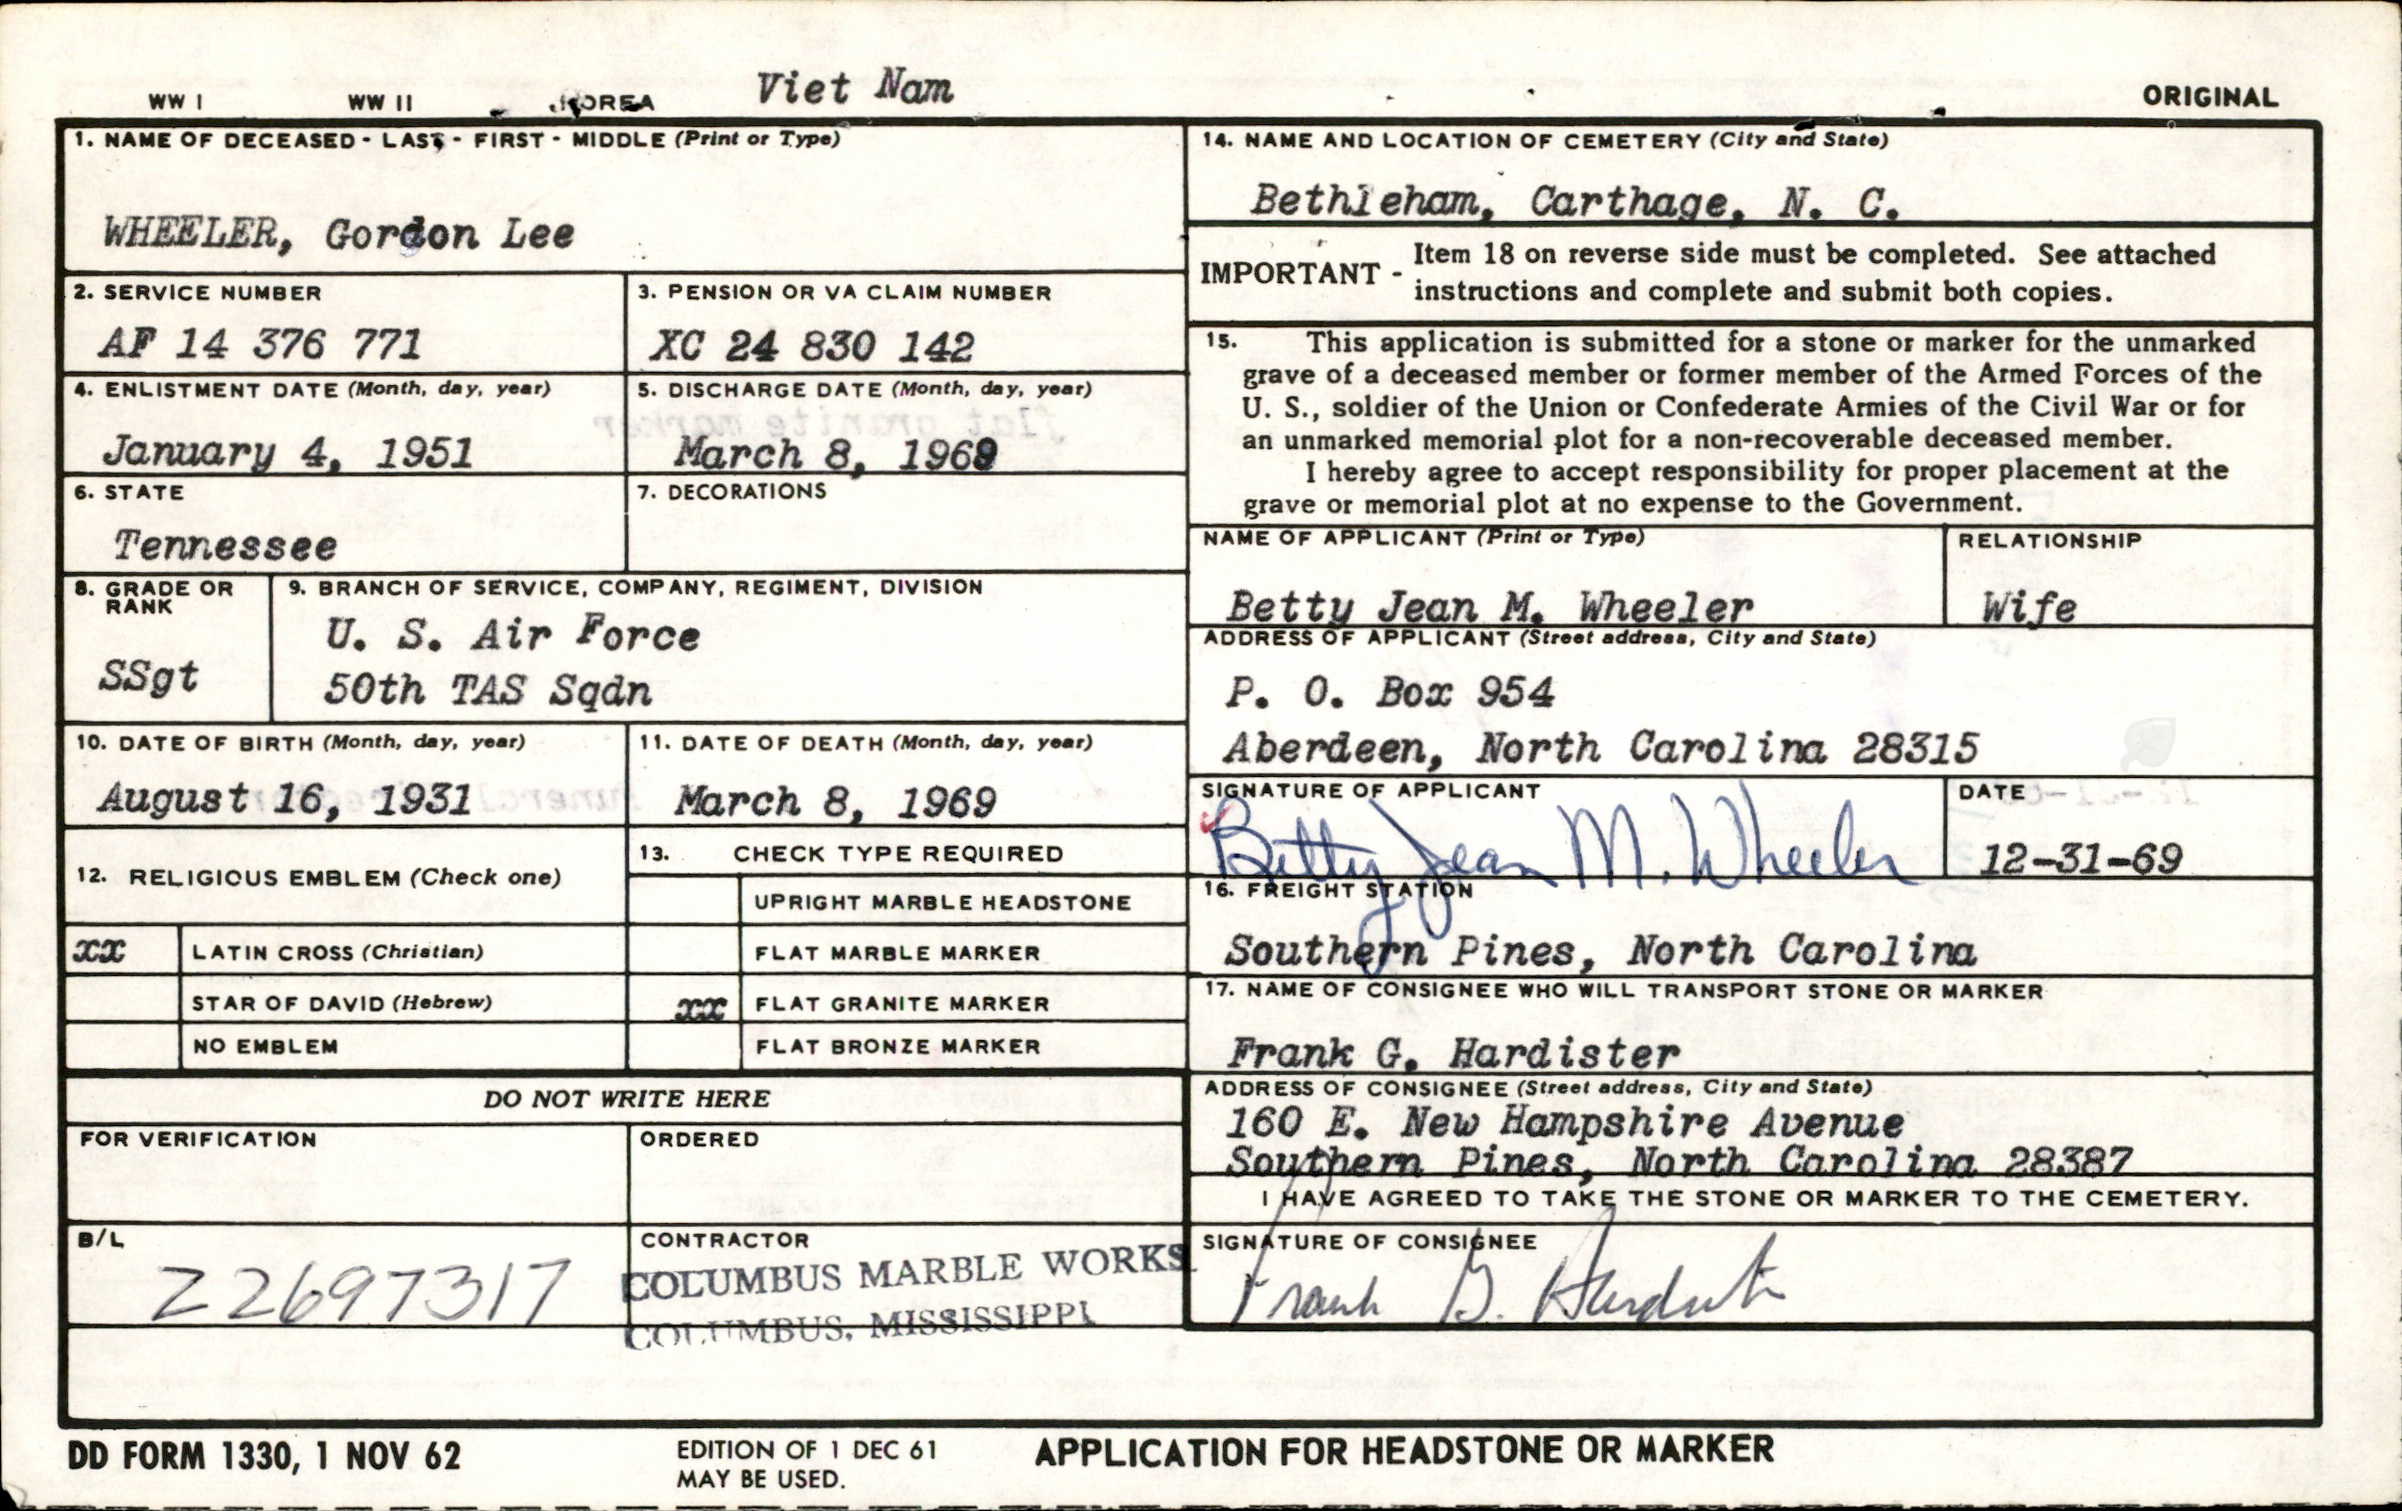 WW I WW II KOREA Viet Nam ORIGINAL
1. NAME OF DECEASED - LAST - FIRST - MIDDLE (Print or Type)
WHEELER, Gordon Lee
2. SERVICE NUMBER
AF 14 376 771
3. PENSION OR VA CLAIM NUMBER
XC 24 830 142
4. ENLISTMENT DATE (Month, day, year)
January 4, 1951
5. DISCHARGE DATE (Month, day, year)
March 8, 1969
6. STATE
Tennessee
7. DECORATIONS
8. GRADE OR
RANK
SSgt
9. BRANCH OF SERVICE, COMPANY, REGIMENT, DIVISION
U. S. Air Force
50th TAS Sqdn
10. DATE OF BIRTH (Month, day, year)
August 16, 1931
11. DATE OF DEATH (Month, day, year)
March 8, 1969
12. RELIGIOUS EMBLEM (Check one)
xx LATIN CROSS (Christian)
STAR OF DAVID (Hebrew)
NO EMBLEM
13. CHECK TYPE REQUIRED
UPRIGHT MARBLE HEADSTONE
FLAT MARBLE MARKER
xx FLAT GRANITE MARKER
FLAT BRONZE MARKER
DO NOT WRITE HERE
FOR VERIFICATION
ORDERED
B/L
22697317
CONTRACTOR
COLUMBUS MARBLE WORKS
COLUMBUS, MISSISSIPPI
14. NAME AND LOCATION OF CEMETERY (City and State)
Bethleham, Carthage, N. C.
IMPORTANT - Item 18 on reverse side must be completed. See attached
instructions and complete and submit both copies.
15. This application is submitted for a stone or marker for the unmarked
grave of a deceased member or former member of the Armed Forces of the
U. S., soldier of the Union or Confederate Armies of the Civil War or for
an unmarked memorial plot for a non-recoverable deceased member.
I hereby agree to accept responsibility for proper placement at the
grave or memorial plot at no expense to the Government.
NAME OF APPLICANT (Print or Type)
Betty Jean M. Wheeler
RELATIONSHIP
Wife
ADDRESS OF APPLICANT (Street address, City and State)
P. O. Box 954
Aberdeen, North Carolina 28315
SIGNATURE OF APPLICANT
Betty Jean M. Wheeler
DATE
12-31-69
16. FREIGHT STATION
Southern Pines, North Carolina
17. NAME OF CONSIGNEE WHO WILL TRANSPORT STONE OR MARKER
Frank G. Hardister
ADDRESS OF CONSIGNEE (Street address, City and State)
160 E. New Hampshire Avenue
Southern Pines, North Carolina 28387
I HAVE AGREED TO TAKE THE STONE OR MARKER TO THE CEMETERY.
SIGNATURE OF CONSIGNEE
Frank G. Hardister
DD FORM 1330, 1 NOV 62
EDITION OF 1 DEC 61
MAY BE USED.
APPLICATION FOR HEADSTONE OR MARKER